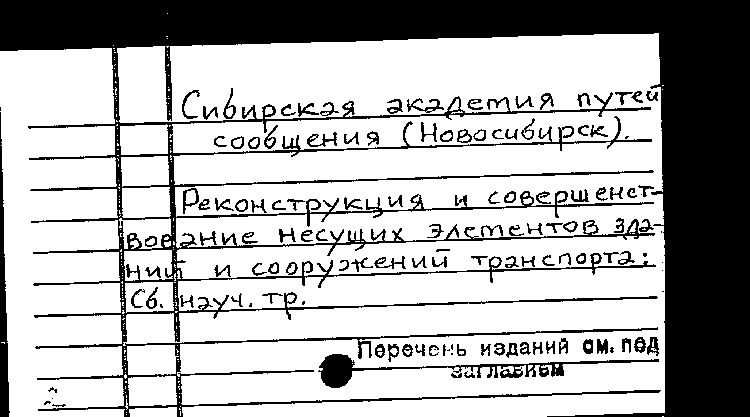 Сибирская академия путей
сообщения (Новосибирск).
Реконструкция и совершенст-
вование несущих элементов зда-
ний и сооружений транспорта:
Сб. науч. тр.
Перечень изданий см. под
заглавием
2